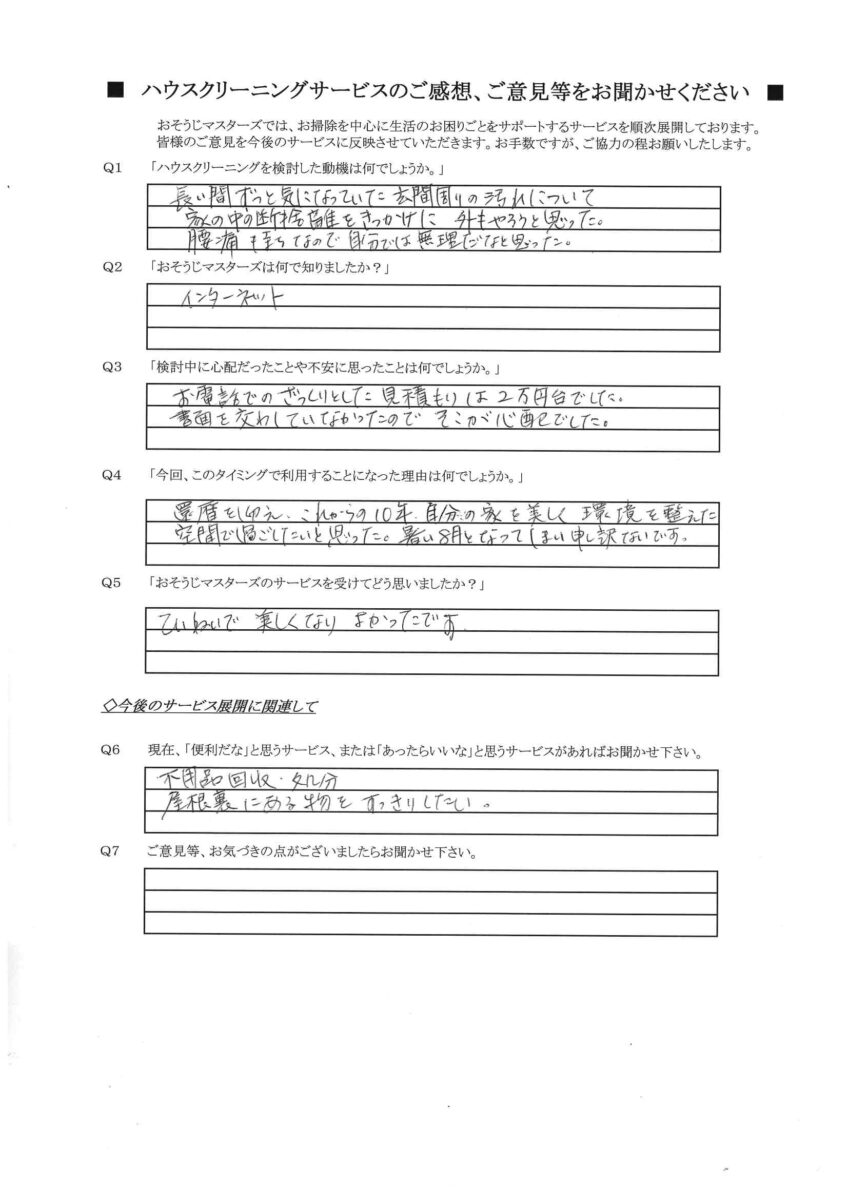 ■ ハウスクリーニングサービスのご感想、ご意見等をお聞かせください ■
おそうじマスターズでは、お掃除を中心に生活のお困りごとをサポートするサービスを順次展開しております。
皆様のご意見を今後のサービスに反映させていただきます。お手数ですが、ご協力の程お願いしたします。
Q1 「ハウスクリーニングを検討した動機は何でしょうか。」
長い間ずっと気になっていた玄関周りの汚れについて
家の中の断捨離をきっかけに 外もやろうと思った。
腰痛持ちなので自分では無理だなと思った。
Q2 「おそうじマスターズは何で知りましたか？」
インターネット
Q3 「検討中に心配だったことや不安に思ったことは何でしょうか。」
お電話でのざっくりとした見積もりは2万円台でした。
書面を交わしていなかったので そこが心配でした。
Q4 「今回、このタイミングで利用することになった理由は何でしょうか。」
還暦を迎え、これからの10年、自分の家を美しく 環境を整えた
空間で過ごしたいと思った。暑い8月となってしまい申し訳ないです。
Q5 「おそうじマスターズのサービスを受けてどう思いましたか？」
ていねいで 美しくなり よかったです
◇今後のサービス展開に関連して
Q6 現在、「便利だな」と思うサービス、または「あったらいいな」と思うサービスがあればお聞かせ下さい。
不用品回収・処分
屋根裏にある物を すっきりしたい。
Q7 ご意見等、お気づきの点がございましたらお聞かせ下さい。